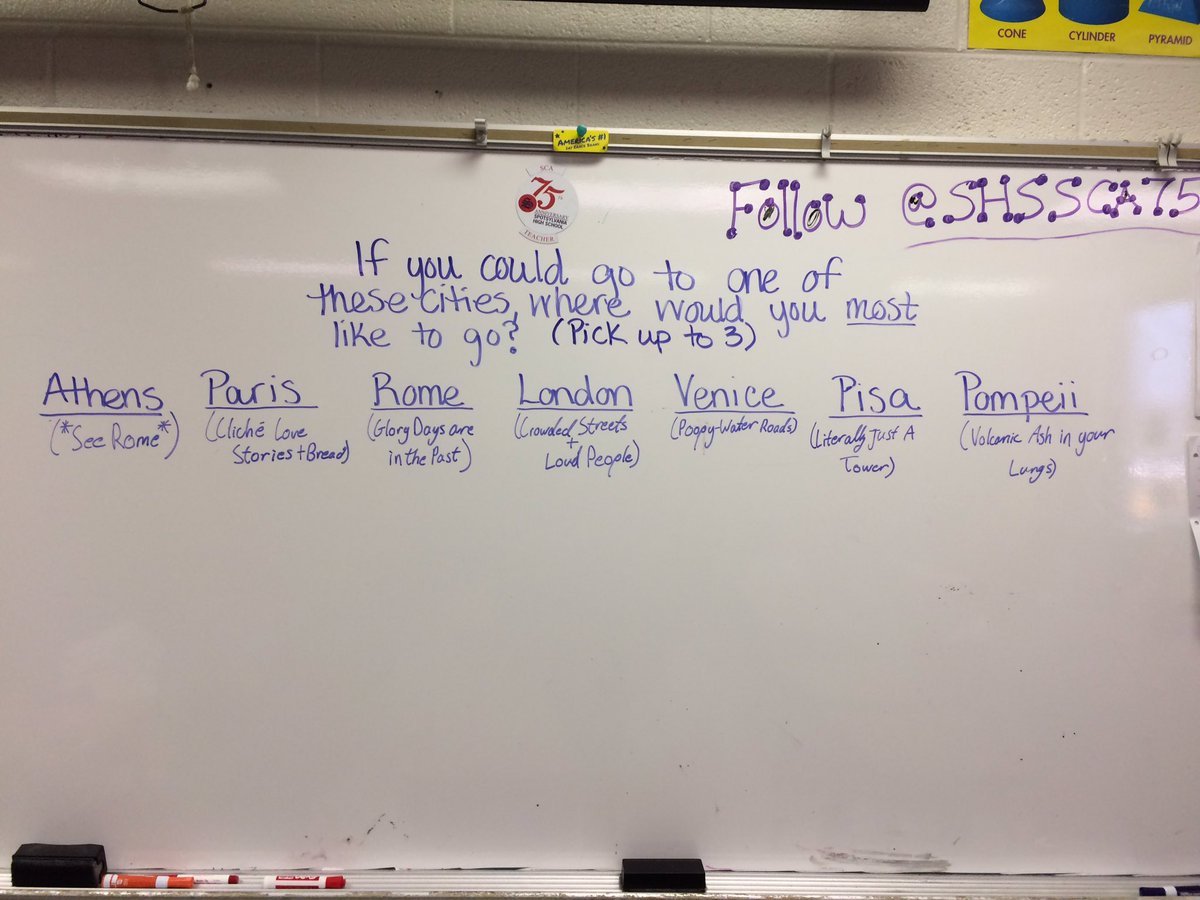 CONE CYLINDER PYRAMID
AMERICA'S #1
SCA
75th
ANNIVERSARY
SPOTSYLVANIA
HIGH SCHOOL
TEACHER
Follow @SHSSCA75
If you could go to one of
these cities, where would you most
like to go? (Pick up to 3)
Athens
(*See Rome*)
Paris
(Cliché Love
Stories + Bread)
Rome
(Glory Days are
in the Past)
London
(Crowded Streets
+
Loud People)
Venice
(Poopy-Water Roads)
Pisa
(Literally Just A
Tower)
Pompeii
(Volcanic Ash in your
Lungs)